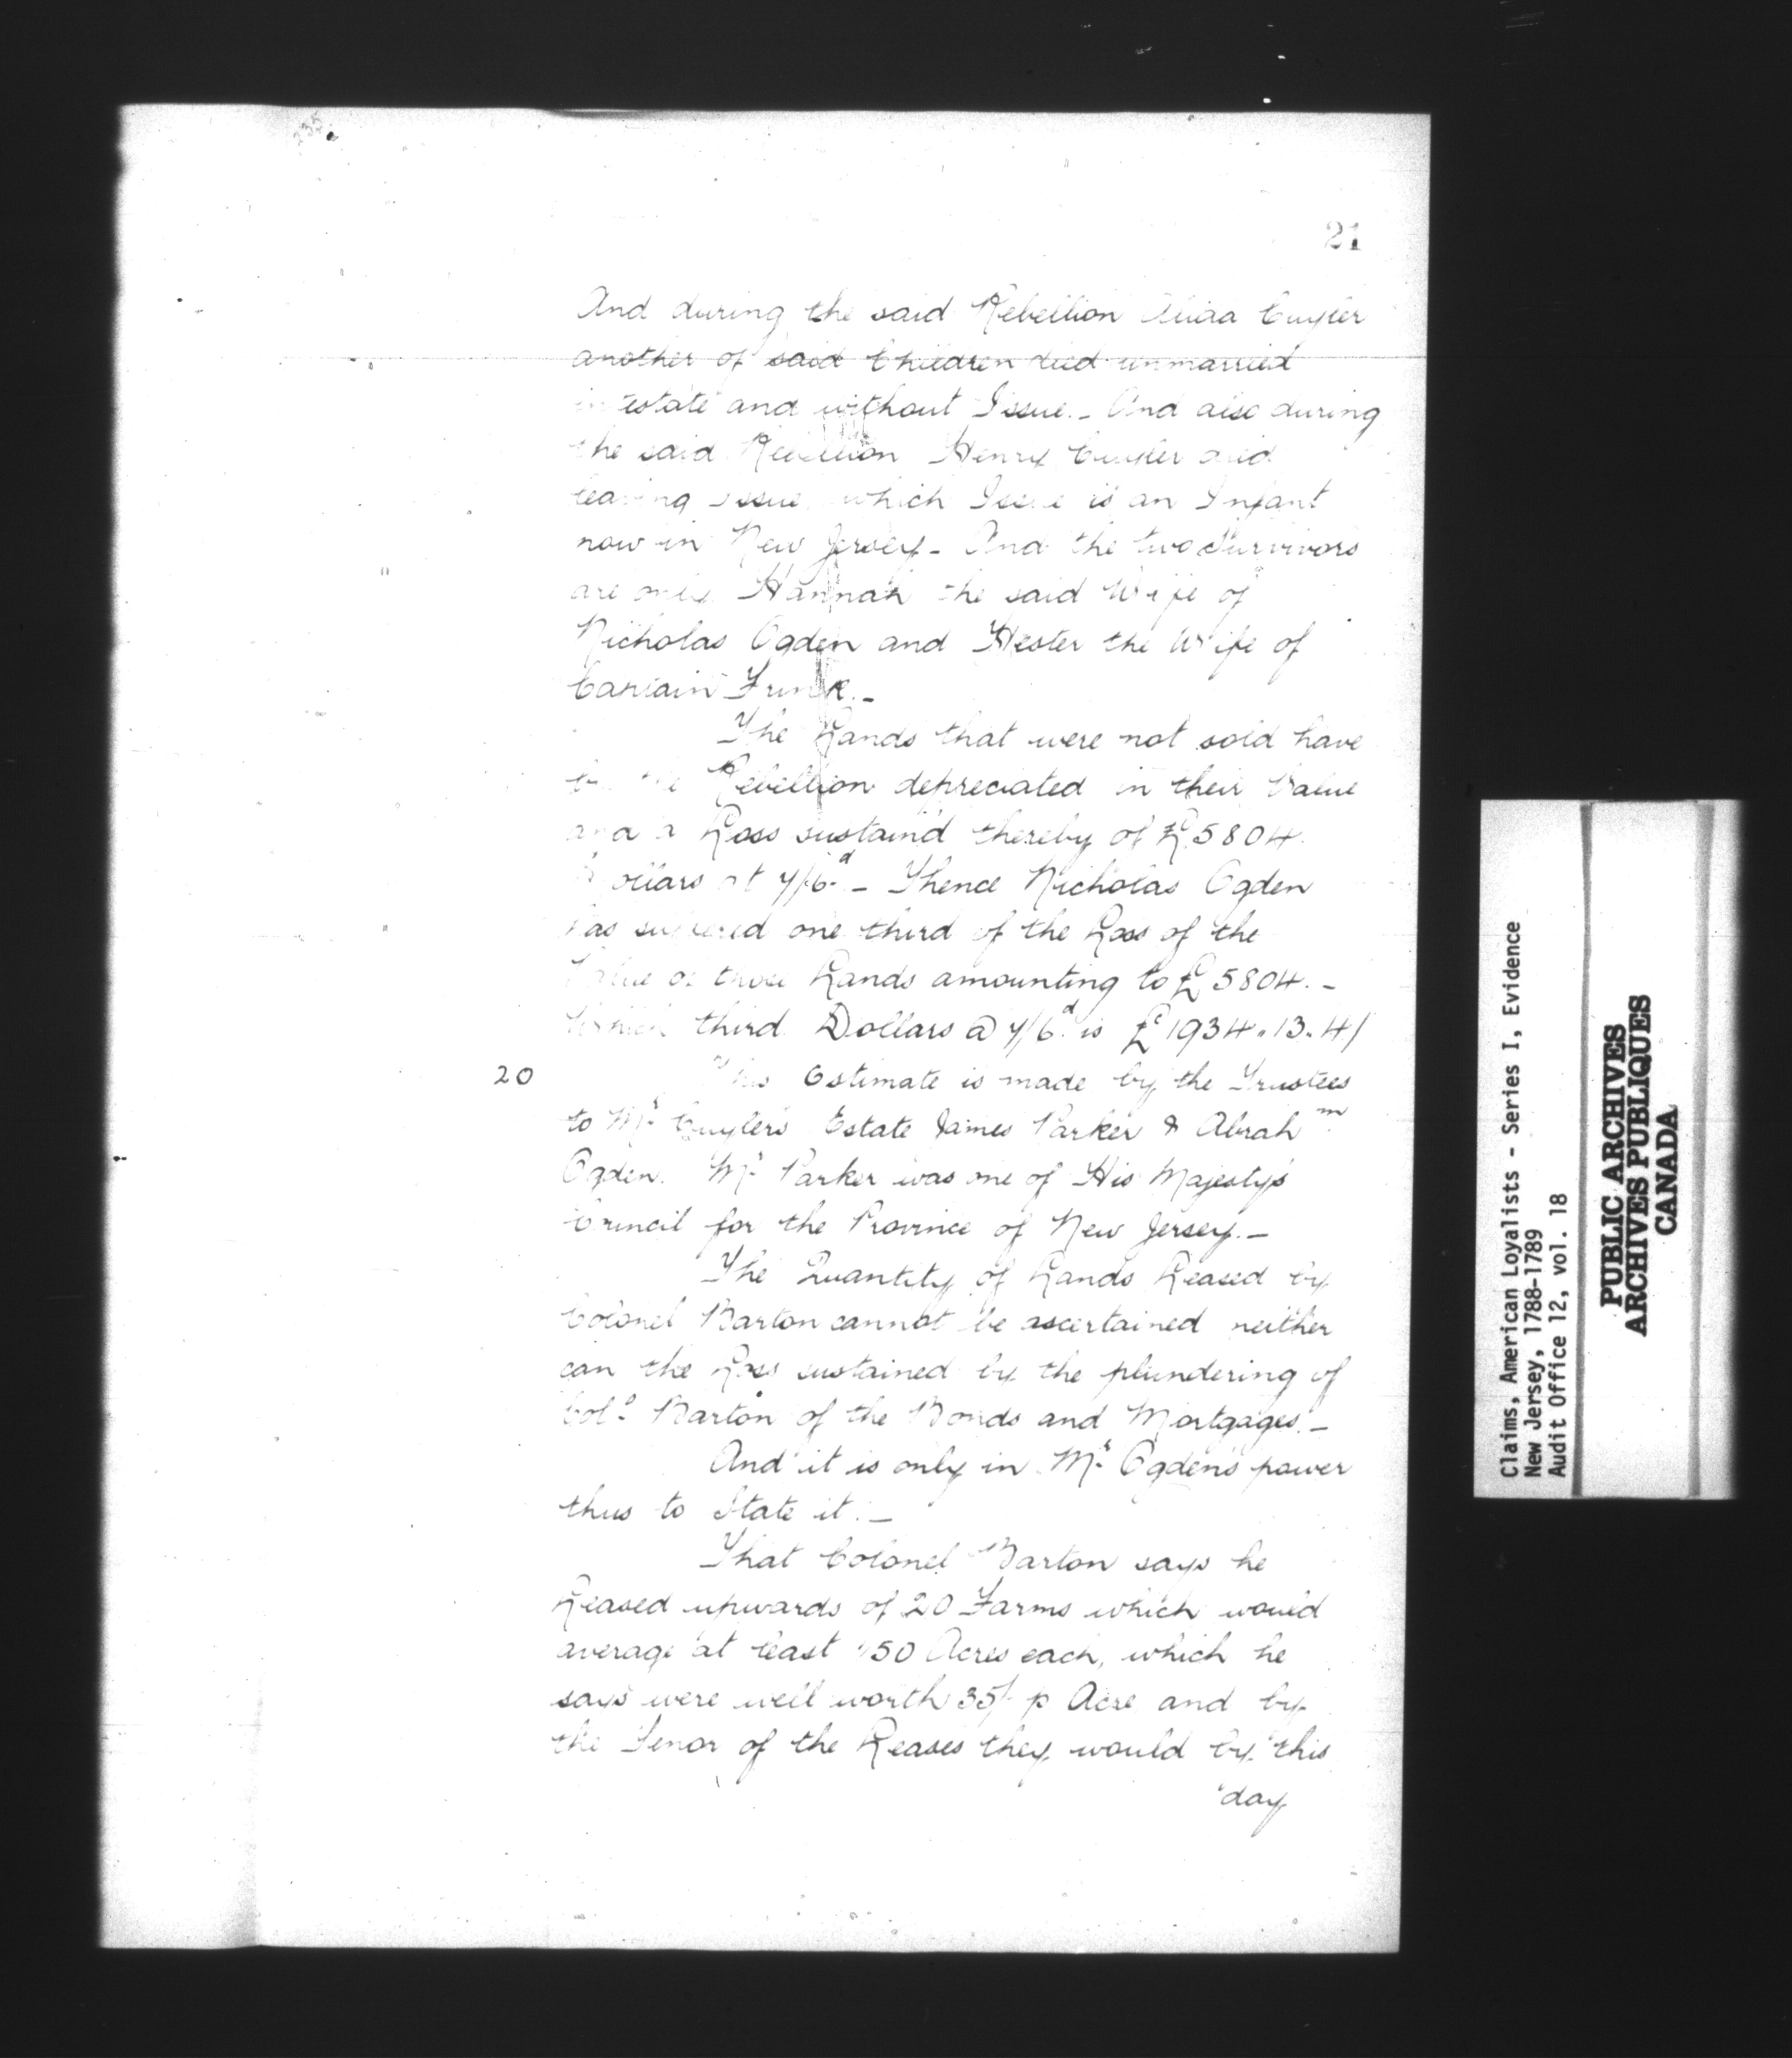 21
And during the said Rebellion Cuyler
another of said Children died unmarried
intestate and without Issue. _ And also during
the said Rebellion Henry Cuyler died
leaving issue which Issue is an Infant
now in New Jersey _ And the two Survivors
are only Hannah the said Wife of
Nicholas Ogden and Hester the Wife of
Captain Frink. _
The Lands that were not sold have
by the Rebellion depreciated in their Value
and a Loss sustain'd thereby of £5804
Dollars at 7/6d _ Thence Nicholas Ogden
has suffered one third of the Loss of the
Value of those Lands amounting to £5804. _
Which third Dollars @ 7/6d is £1934.13.4/
20
This Estimate is made by the Trustees
to Mr Cuylers Estate James Parker & Abrahm
Ogden. Mr Parker was one of His Majesty's
Council for the Province of New Jersey. _
The Quantity of Lands Leased by
Colonel Barton cannot be ascertained neither
can the Loss sustained by the plundering of
Colo Barton of the Bonds and Mortgages. _
And it is only in Mr Ogden's power
thus to State it. _
That Colonel Barton says he
Leased upwards of 20 Farms which would
average at least 150 Acres each, which he
says were well worth 35/ p Acre and by
the Tenor of the Leases they would by this
day
Claims, American Loyalists - Series I, Evidence
New Jersey, 1788-1789
Audit Office 12, vol. 18
PUBLIC ARCHIVES
ARCHIVES PUBLIQUES
CANADA